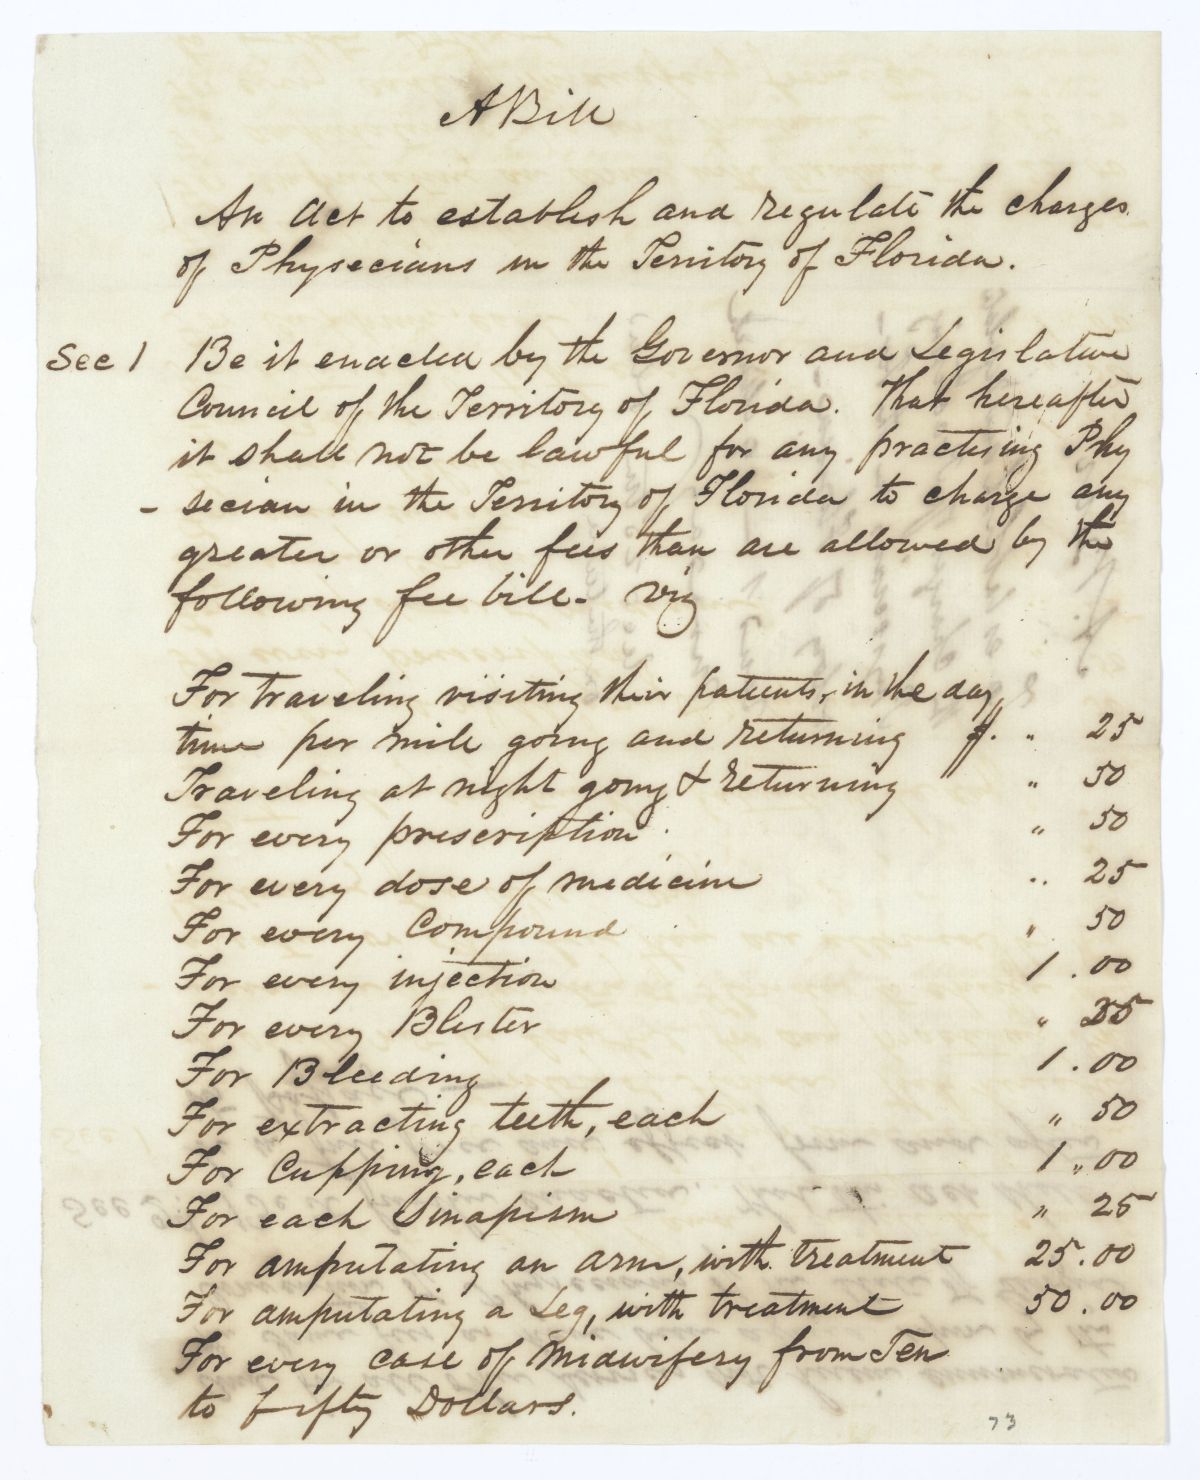 A Bill
An Act to establish and regulate the charges
of Physecians in the Territory of Florida.
Sec 1 Be it enacted by the Governor and Legislative
Council of the Territory of Florida. That hereafter
it shall not be lawful for any practising Phy
- secian in the Territory of Florida to charge any
greater or other fees than are allowed by the
following fee bill - viz
For traveling visiting their patients, in the day
time per mile going and returning $. " 25
Traveling at night going & returning " 50
For every prescription " 50
For every dose of medicine .. 25
For every Compound " 50
For every injection 1.00
For every Blister "
For Bleeding 1.00
For extracting teeth, each " 50
For Cupping, each 1 "00
For each Sinapism " 25
For amputating an arm, with treatment 25.00
For amputating a Leg, with treatment 50.00
For every case of Midwifery from Ten
to Fifty Dollars.
73